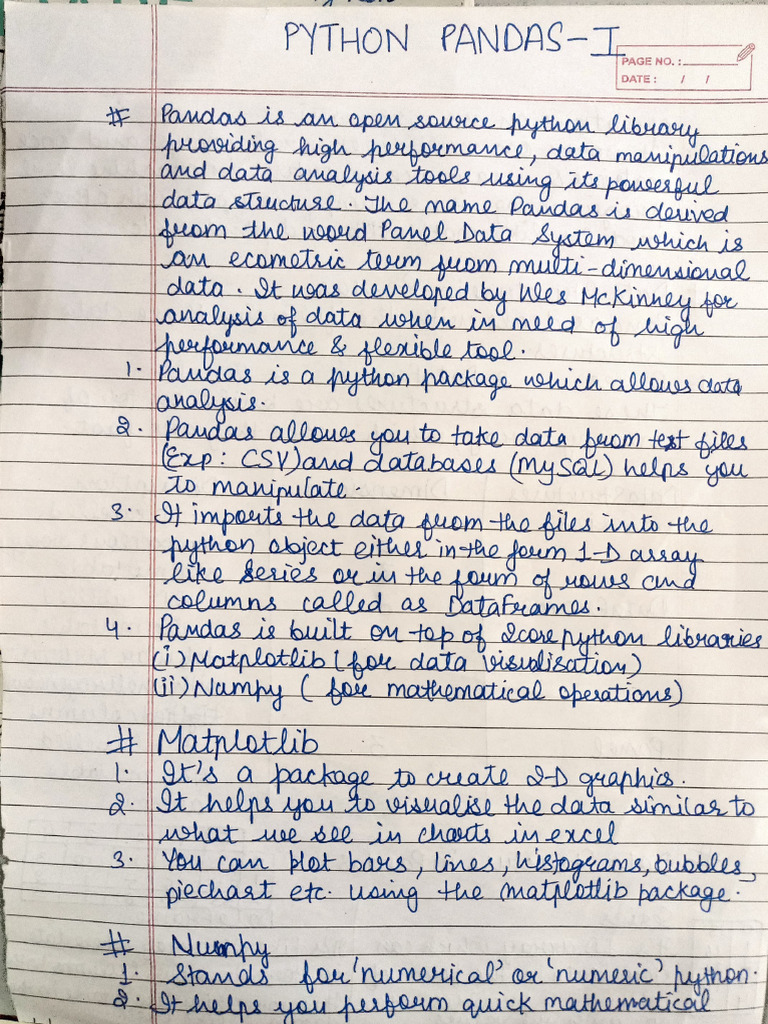 PYTHON PANDAS-I
PAGE NO. :
DATE : / /
# Pandas is an open source python library
providing high performance, data manipulations
and data analysis tools using its powerful
data structure. The name Pandas is derived
from the word Panel Data System which is
an ecometric term from multi-dimensional
data. It was developed by Wes McKinney for
analysis of data when in need of high
performance & flexible tool.
1. Pandas is a python package which allows data
analysis.
2. Pandas allows you to take data from test files
(Exp: CSV) and databases (MySQL) helps you
to manipulate
3. It imports the data from the files into the
python object either in the form 1-D array
like Series or in the form of rows and
columns called as DataFrames.
4. Pandas is built on top of 2 core python libraries
(i) Matplotlib (for data visualisation)
(ii) Numpy ( for mathematical operations)
# Matplotlib
1. It's a package to create 2-D graphics.
2. It helps you to visualise the data similar to
what we see in charts in excel
3. You can plot bars, lines, histograms, bubbles,
piechart etc. using the matplotlib package.
# Numpy
1. Stands for 'numerical' or 'numeric' python.
2. It helps you perform quick mathematical